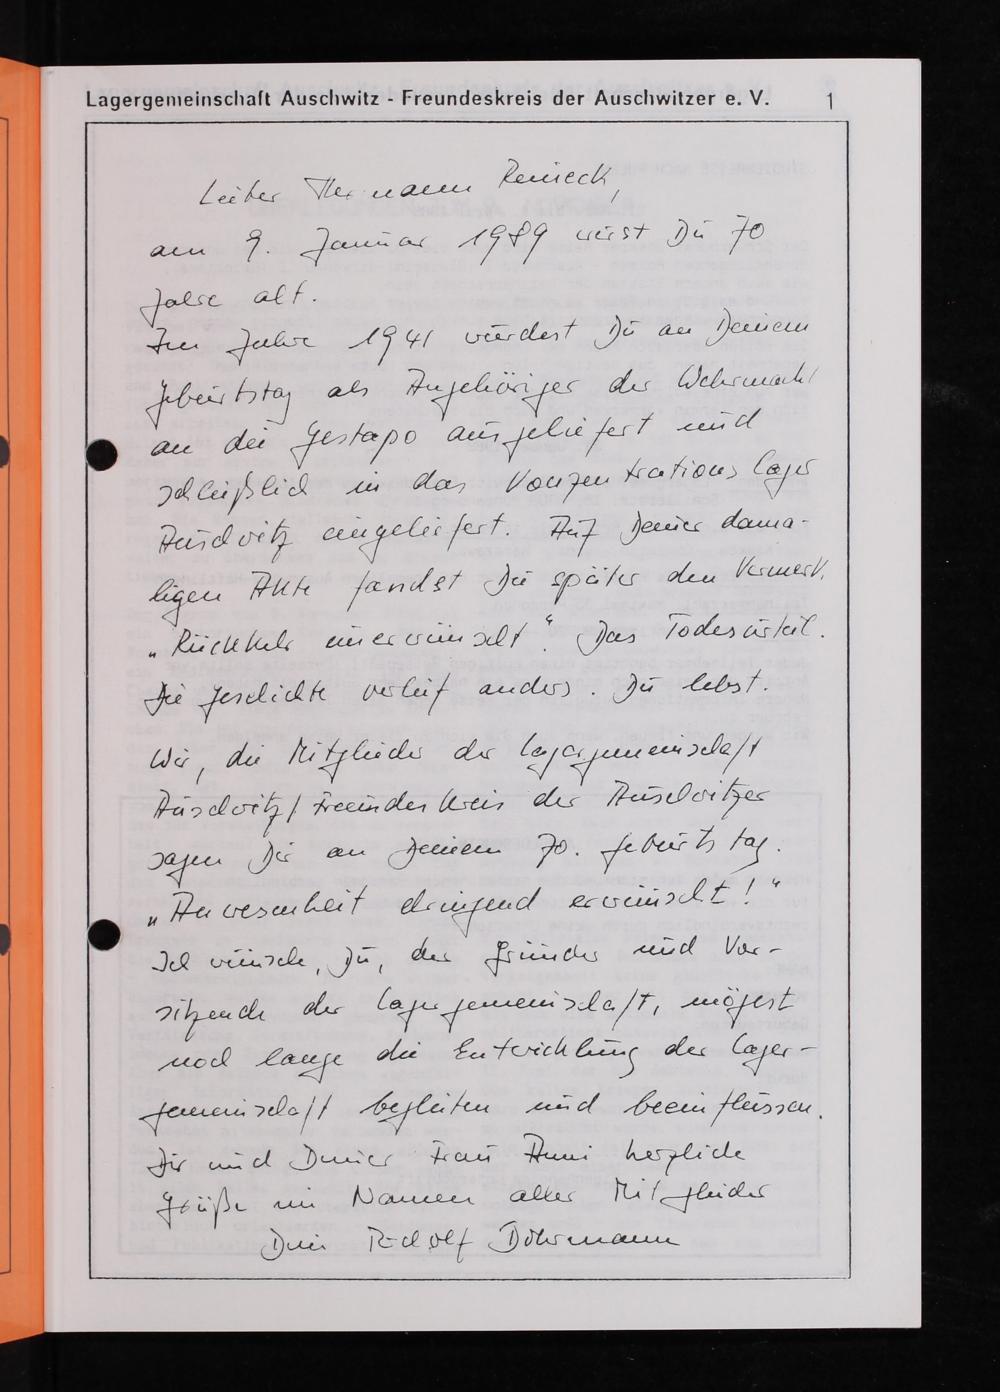 Lagergemeinschaft Auschwitz - Freundeskreis der Auschwitzer e. V. 1
Lieber Hermann Reineck,
am 9. Januar 1989 wirst Du 70
Jahre alt.
Im Jahre 1941 wurdest Du an Deinem
Geburtstag als Angehöriger der Wehrmacht
an die Gestapo ausgeliefert und
schließlich in das Konzentrationslager
Auschwitz eingeliefert. Auf Deiner dama-
ligen Akte fandst Du später den Vermerk.
„Rückkehr unerwünscht". Das Todesurteil.
Die Geschichte verlief anders. Du lebst.
Wir, die Mitglieder der Lagergemeinschaft
Auschwitz/Freundeskreis der Auschwitzer
sagen Dir an Deinem 70. Geburtstag.
„Anwesenheit dringend erwünscht!"
Ich wünsche, Du, der Gründer und Vor-
sitzende der Lagergemeinschaft, mögest
noch lange die Entwicklung der Lager-
gemeinschaft begleiten und beeinflussen.
Dir und Deiner Frau Anni herzliche
Grüße im Namen aller Mitglieder
Dein Rudolf Dohrmann